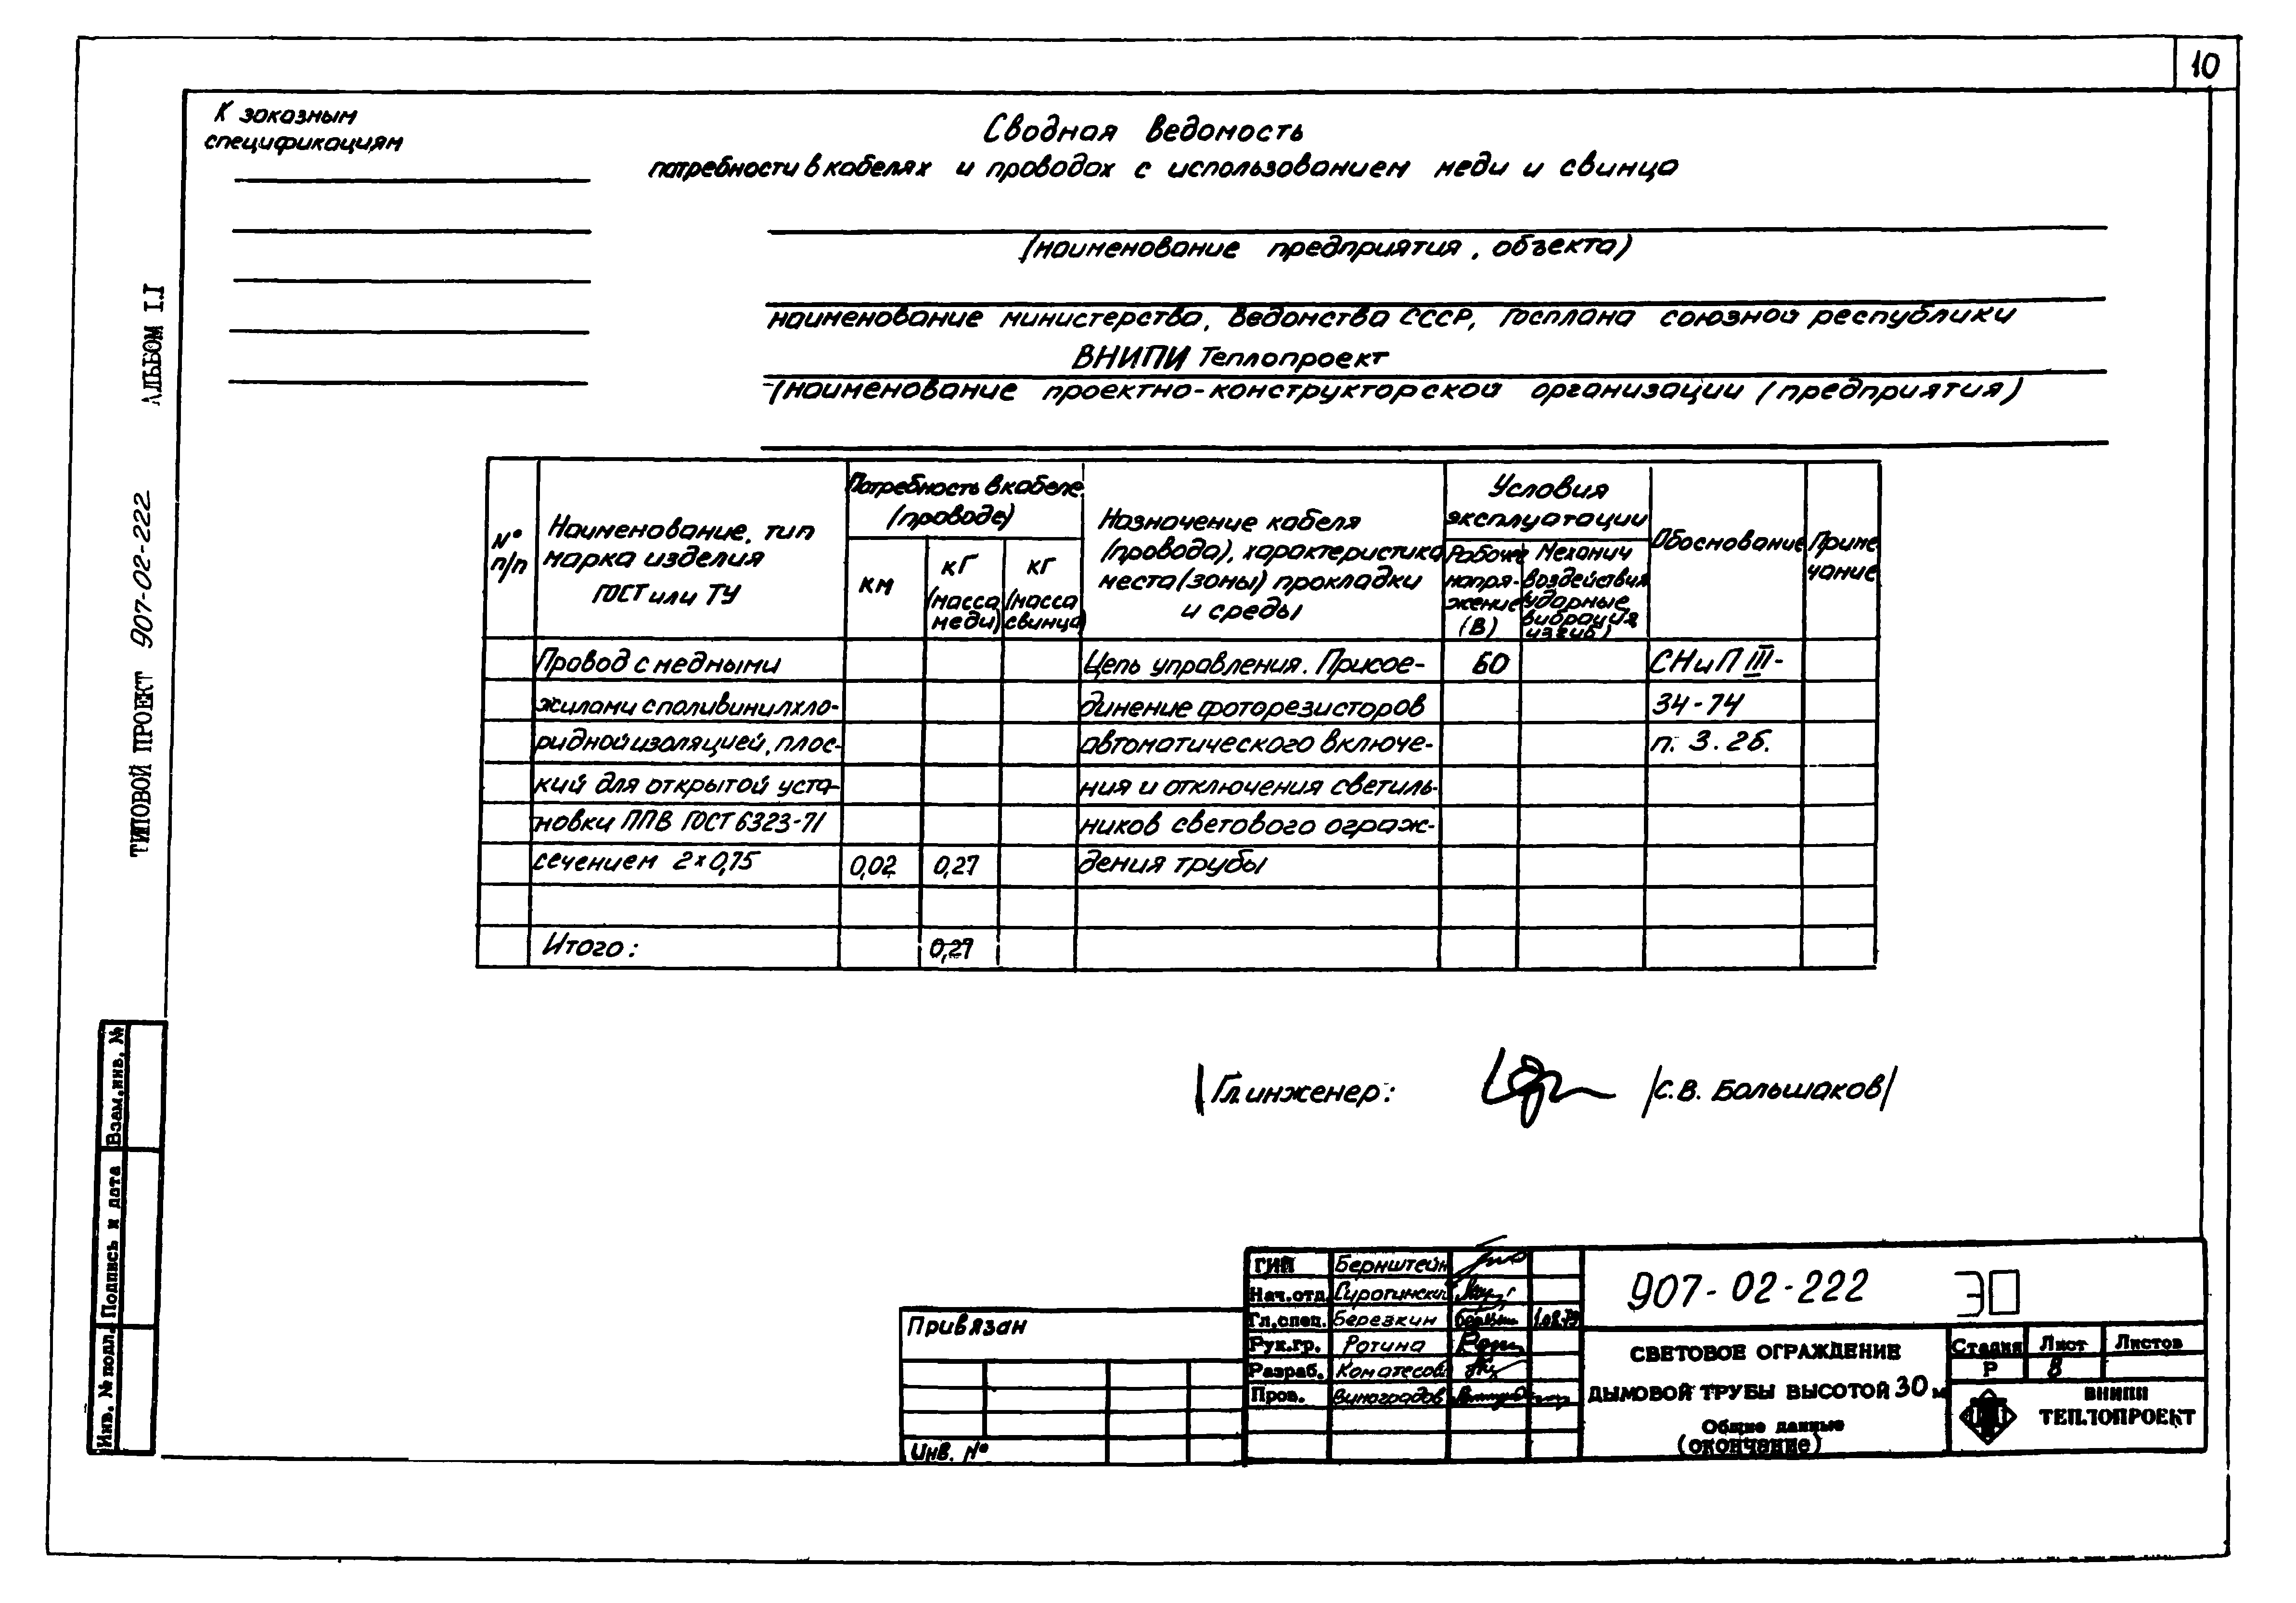 10
К заказным
спецификациям
Сводная ведомость
потребности в кабелях и проводах с использованием меди и свинца
(наименование предприятия, объекта)
наименование министерства, ведомства СССР, Госплана союзной республики
ВНИПИ Теплопроект
(наименование проектно-конструкторской организации (предприятия)
АЛЬБОМ I.I
ТИПОВОЙ ПРОЕКТ 907-02-222
№ п/п
Наименование, тип
марка изделия
ГОСТ или ТУ
Потребность в кабеле
(проводе)
км
кг
(масса
меди)
кг
(масса
свинца)
Назначение кабеля
(провода), характеристика
места (зоны) прокладки
и среды
Условия
эксплуатации
Рабочее
напря-
жение
(В)
Механич
воздействия
(ударные,
вибрация
изгиб)
Обоснование
Приме
чание
Провод с медными Цепь управления. Присое- 60 СНиП III-
жилами с поливинилхло- динение фоторезисторов 34-74
ридной изоляцией, плос- автоматического включе- п. 3.26.
кий для открытой уста- ния и отключения светиль-
новки ППВ ГОСТ 6323-71 ников светового ограж-
сечением 2×0,75 0,02 0,27 дения трубы
Итого: 0,27
Гл. инженер: /С.В. Большаков/
Взам.инв. №
Подпись и дата
Инв. № подл.
Привязан
Инв. №
ГИП Бернштейн
Нач.отд.
Гл.спец. Березкин
Рук.гр. Ротина
Разраб.
Пров. Виноградов
907-02-222 ЭО
СВЕТОВОЕ ОГРАЖДЕНИЕ
ДЫМОВОЙ ТРУБЫ ВЫСОТОЙ 30 м
Общие данные
(окончание)
Стадия Лист Листов
Р 8
ВНИПИ
ТЕПЛОПРОЕКТ